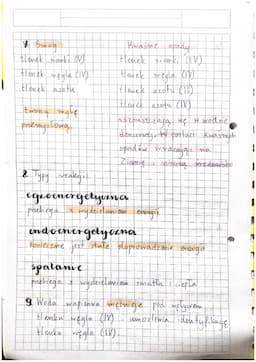 1. Smog
tlenek siarki (IV)
tlenek węgla (IV)
tlenek azotu
tworzą mgłę
przemysłową
Kwaśne opady
tlenek siarki (IV)
tlenek węgla (IV)
tlenek azotu (II)
tlenek azotu (IV)
rozpuszczają się w wodzie
w postaci kwaśnych
opadów wracają na
Ziemię i niszczą
2. Typy reakcji:
egzoenergetyczna
przebiega z wydzielaniem energii
endoenergetyczna
konieczne jest stałe doprowadzanie energii
spalanie
przebiega z wydzielaniem światła i ciepła
9. Woda wapienna mętnieje pod wpływem
tlenku węgla (IV) i umożliwia identyfikację
tlenku węgla (IV).